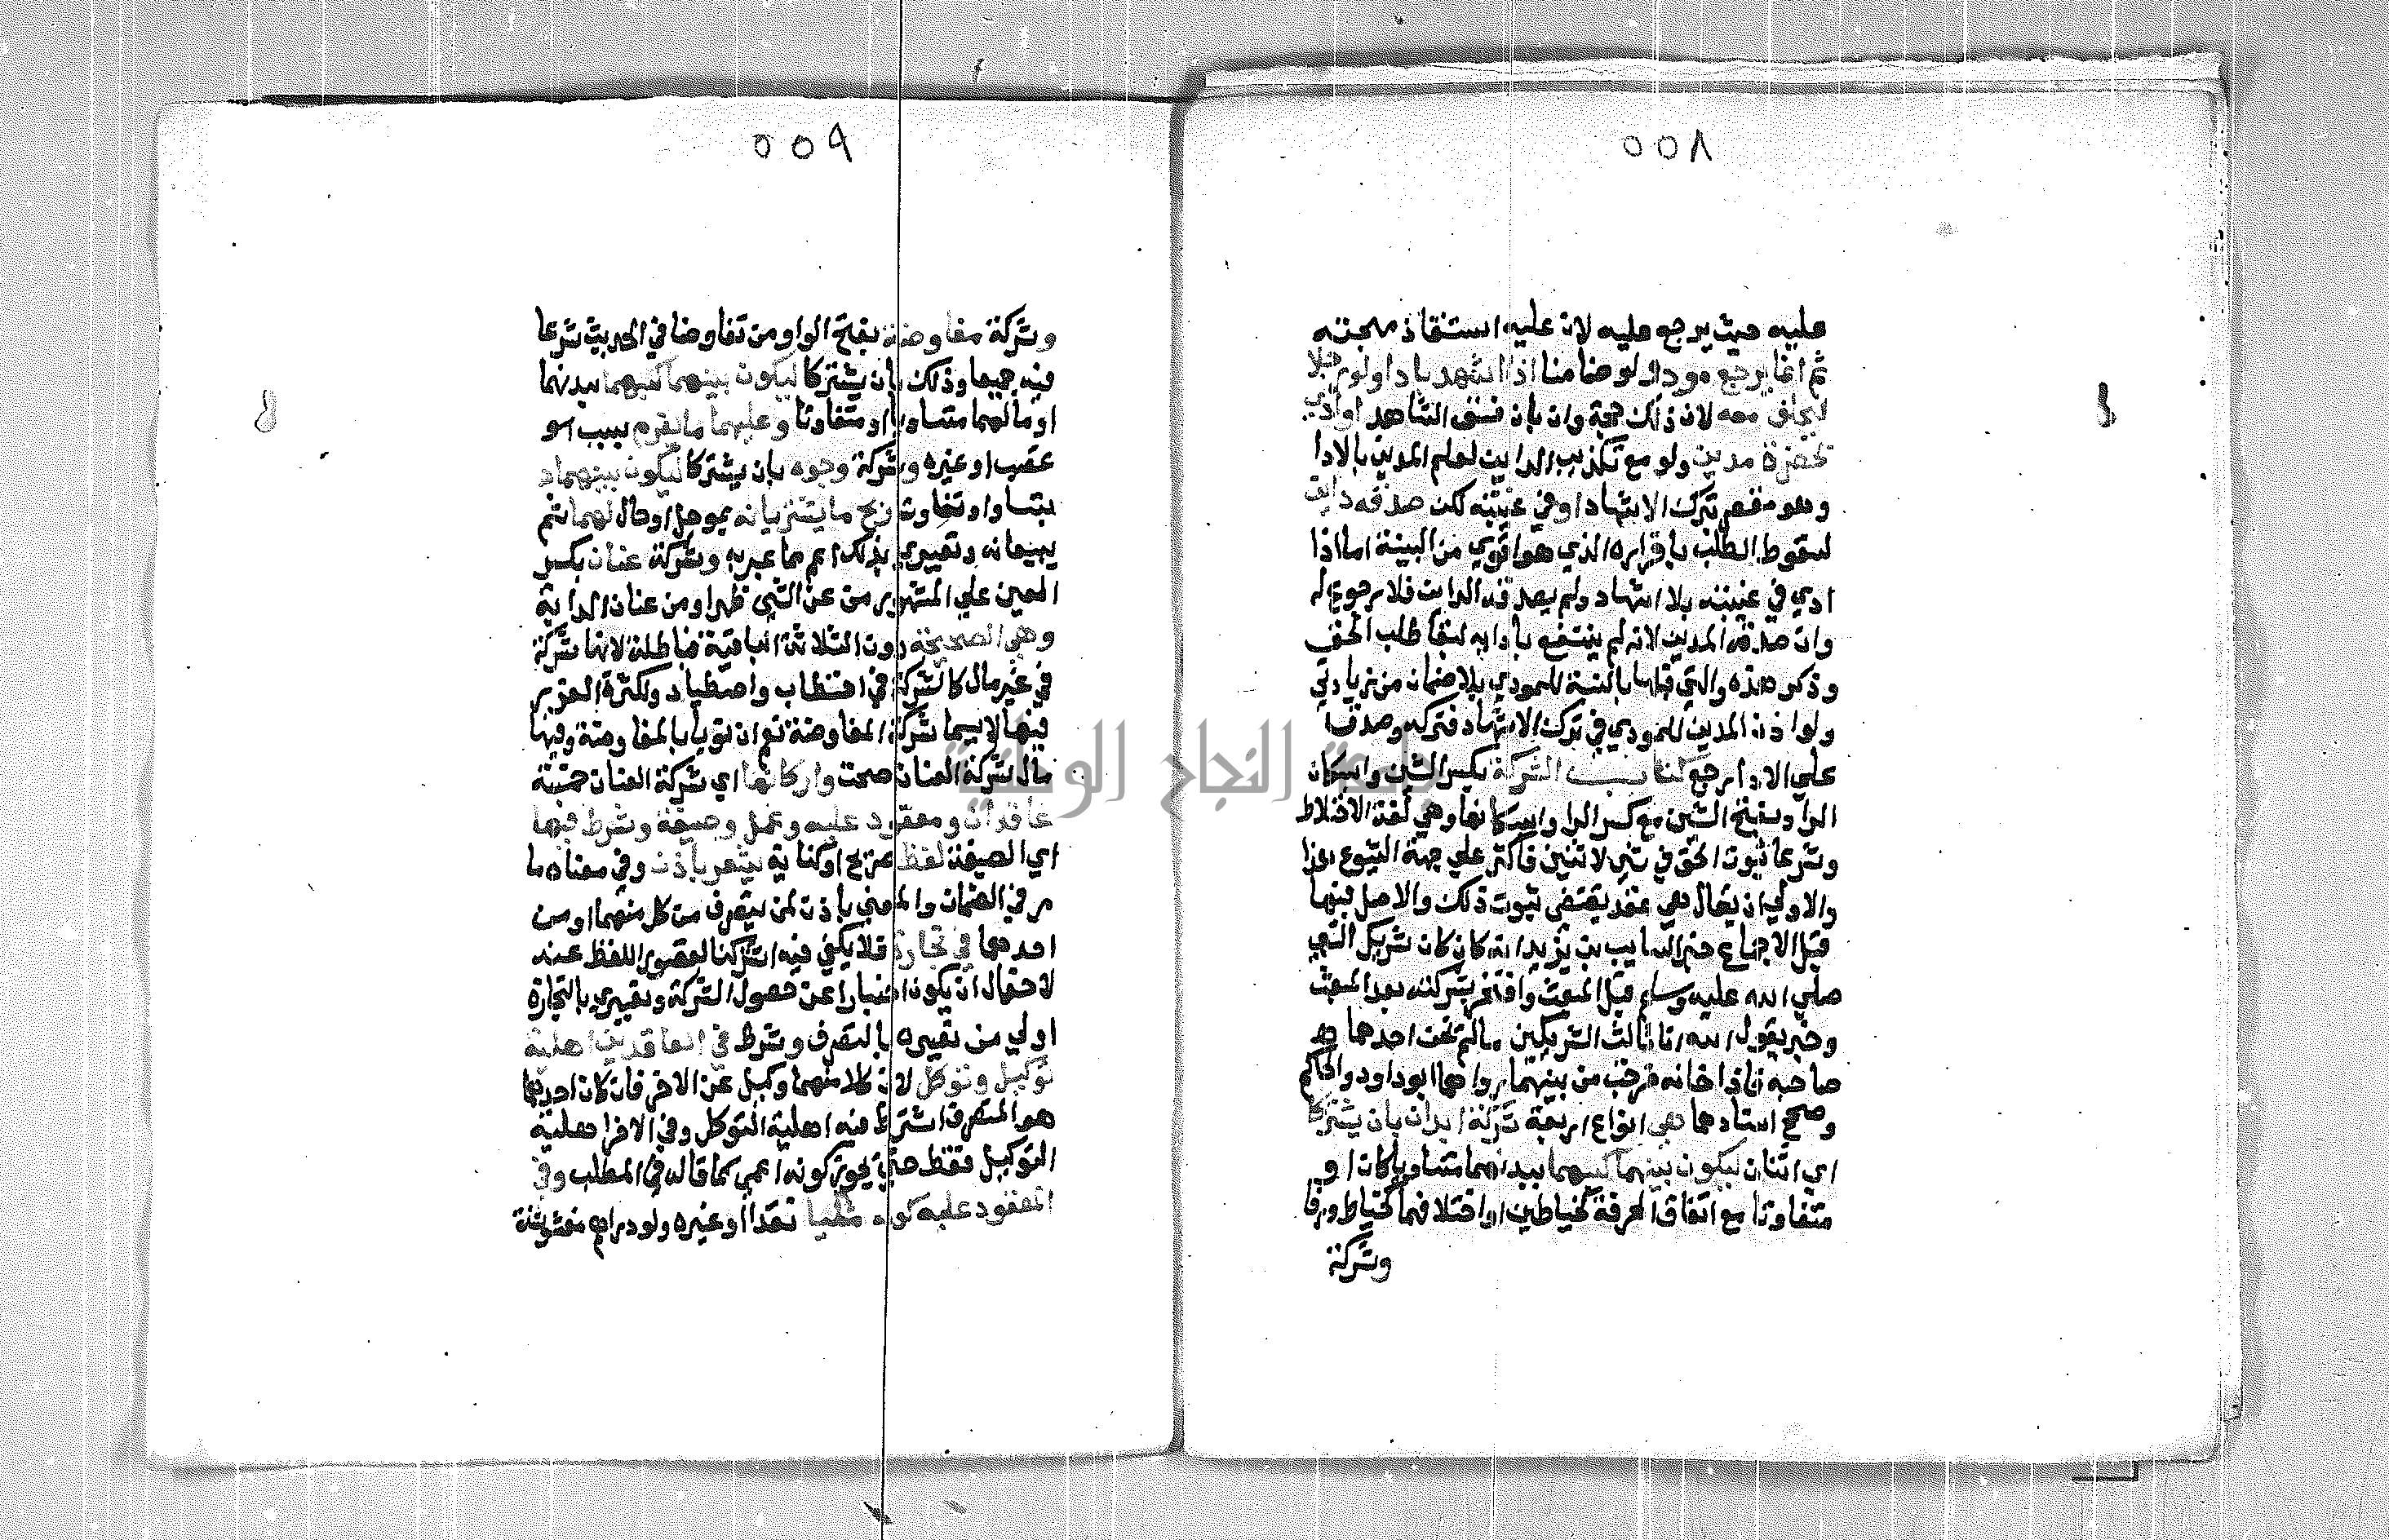 ٥٥٨
عليه حيث يرجع عليه لان عليه استنقاذ مهجته
ثم انما يرجع مودٍ ولو ضامنا اذا اشهد باداء ولو رجلا
ليحلف معه لان ذلك حجة وان بان فسق الشاهد او ادي
بحضرة مدين ولو مع تكذيب الداين لعلم المدين بالادا
وهو مقصر بترك الاشهاد او في غيبته لكن صدقه داين
لسقوط الطلب باقراره الذي هو اقوي من البينة اما اذا
ادي في غيبته بلا اشهاد ولم يصدقه الداين فلا رجوع له
وان صدقه المدين لانه لم ينتفع بادايه لبقا طلب الحق
وذكر هذه والتي قبلها بالنسبة للمودي بلا ضمان من زيادتي
ولو اذن المدين للمودي في ترك الاشهاد فتركه وصدقه
علي الادا رجع كتاب الشركة بكسر الشين واسكان
الرا وبفتح الشين مع كسر الرا واسكانها وهي لغة الاختلاط
وشرعا ثبوت الحق في شي لاثنين فاكثر علي جهة الشيوع هذا
والاولي ان يقال هي عقد يقتضي ثبوت ذلك والاصل فيها
قبل الاجماع خبر السايب بن يزيد انه كان شريك النبي
صلي الله عليه وسلم قبل المبعث وافتخر بشركته بعد المبعث
وخبر يقول الله انا ثالث الشريكين مالم يخن احدهما
صاحبه فاذا خانه خرجت من بينهما رواهما ابو داود والحاكم
وصحح اسنادهما هي انواع اربعة شركة ابدان بان يشتركا
اي اثنان ليكون بينهما كسبهما ببدنهما متساويا كان او
متفاوتا مع اتفاق الحرفة كخياطين او اختلافهما كخياط ورفا
وشركة
٥٥٩
وشركة مفاوضة بفتح الواو من تفاوضا في الحديث شرعا
فيه جميعا وذلك بان يشتركا ليكون بينهما كسبهما ببدنهما
او مالهما متساويا او متفاوتا وعليهما ما يغرم بسبب
غصب او غيره وشركة وجوه بان يشتركا ليكون بينهما
بتساو او تفاوت ربح ما يشتريانه بموجل او حال لهما ثم
يبيعانه وتعبيري بذلك اعم مما عبر به وشركة عنان بكسر
العين علي المشهور من عن الشي ظهر او من عنان الدابة
وهي الصحيحة دون الثلاثة الباقية فباطلة لانها شركة
في غير مال كالشركة في احتطاب واصطياد ولكثرة الغرر
فيها لاسيما شركة المفاوضة نعم ان نويا بالمفاوضة وفيها
مال شركة العنان صحت واركانها اي شركة العنان خمسة
عاقدان ومعقود عليه وعمل وصيغة وشرط فيها
اي الصيغة لفظ صريح او كناية يشعر باذن وفي معناه ما
مر في الضمان والمعني باذن لمن يتصرف من كل منهما او من
احدهما في تجارة فلا يكفي فيه اشتركنا لقصور اللفظ عنه
لاحتمال ان يكون اخبارا عن حصول الشركة وتعبيري بالتجارة
اولي من تعبيره بالتصرف وشرط في العاقدين اهلية
توكيل وتوكل لان كلا منهما وكيل عن الاخر فان كان احدهما
هو المتصرف اشترط فيه اهلية التوكل وفي الاخر اهلية
التوكيل فقط حتي يجوز كونه اعمي كما قاله في المطلب وفي
المعقود عليه كونه مثليا نقدا او غيره ولو دراهم مغشوشة
جامعة النجاح الوطنية